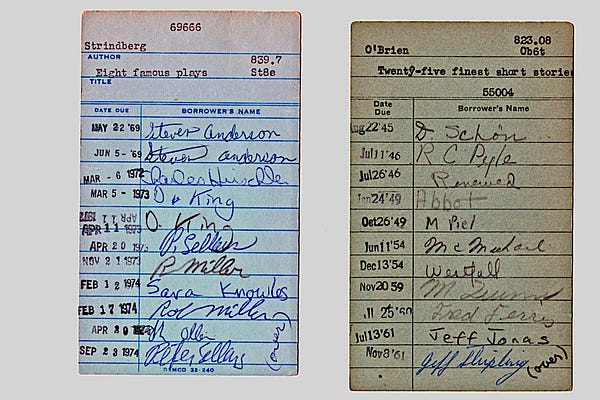 69666
Strindberg
AUTHOR 839.7
Eight famous plays St8e
TITLE
DATE DUE BORROWER'S NAME
MAY 22 '69 Steven Anderson
JUN 5 - '69 Steven Anderson
MAR - 6 1972
MAR 5 - 1973 D. King
APR 11 1973 D. King
APR 20 1973 P. Sellers
NOV 21 1973 R. Miller
FEB 12 1974 Sara Knowles
FEB 17 1974 Rob Miller
APR 29 1974
SEP 23 1974 Peter Sellers
(over)
DEMCO 32-240
823.08
O'Brien Ob6t
Twenty-five finest short stories
55004
Date Due Borrower's Name
Aug22'45 D. Schön
Jul11'46 R C Pyle
Jul26'46 Renewed
Jan24'49 Abbot
Oct26'49 M Piel
Jun11'54 McMichael
Dec13'54 Westfall
Nov20 59 M
Jl 25 '60 Fred Ferris
Jul13'61 Jeff Jonas
Nov8'61 Jeff Shipling
(over)